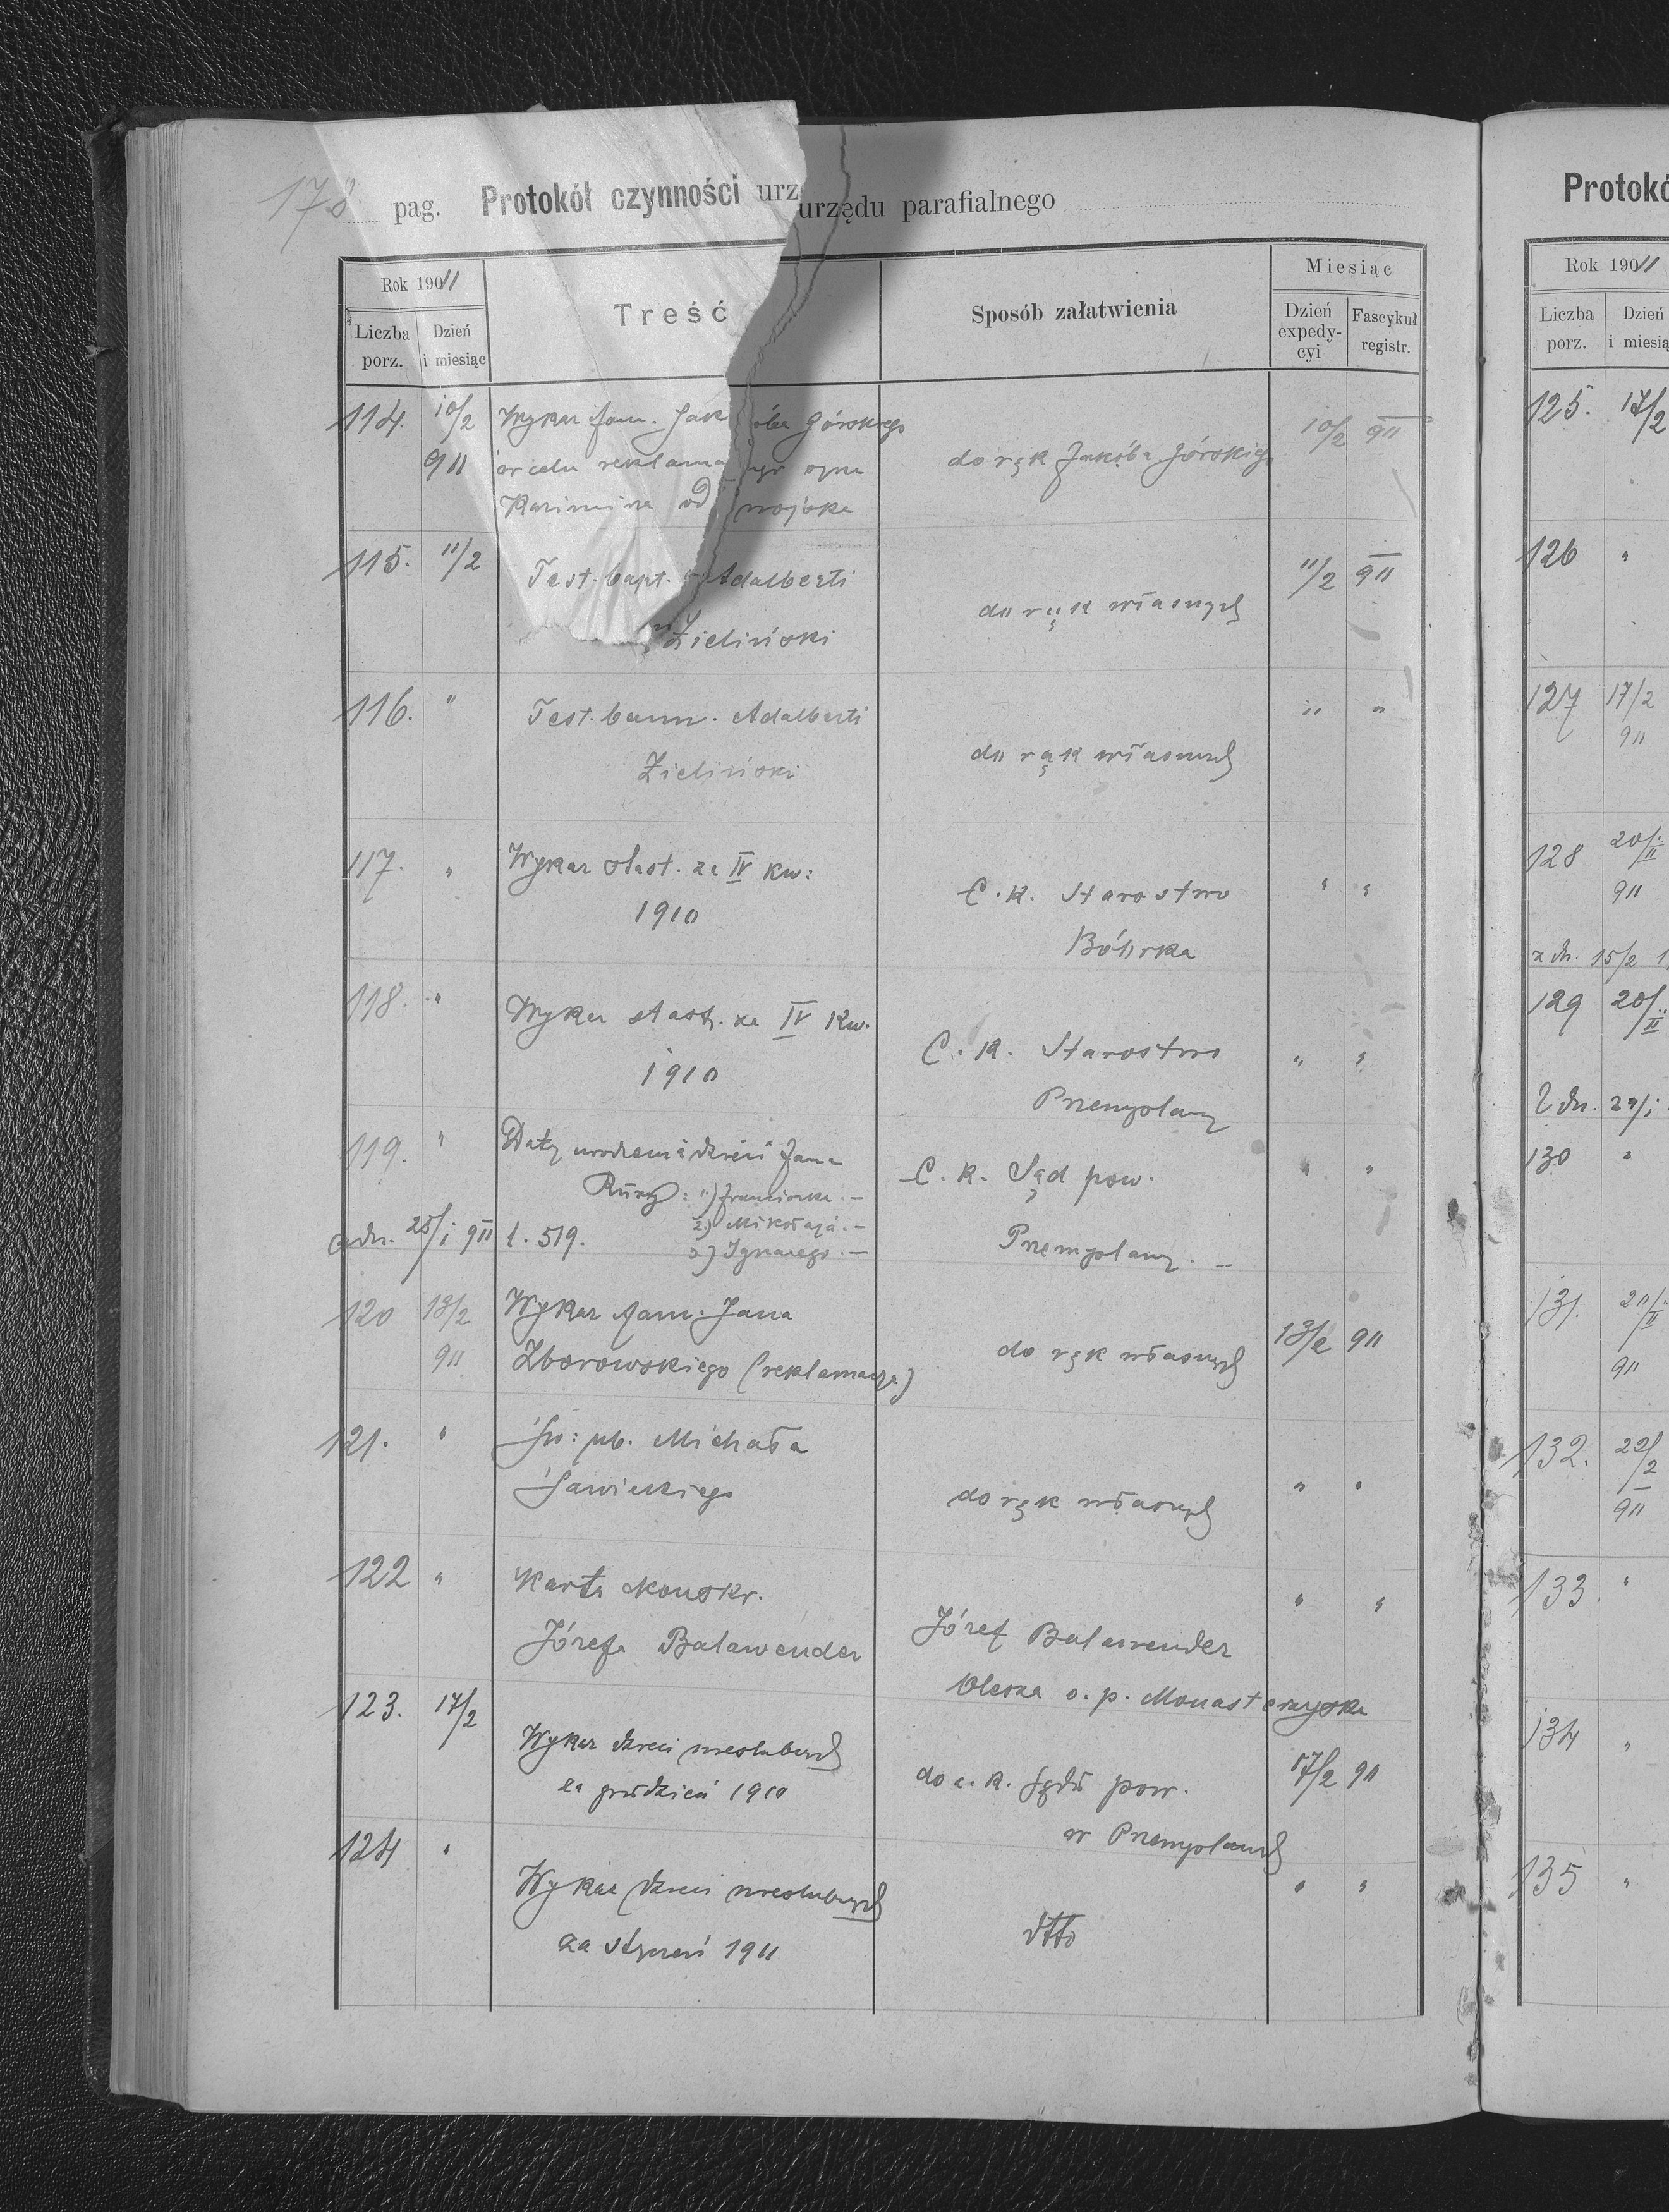 178 pag. Protokół czynności urz urzędu parafialnego
Rok 1911
Liczba porz.
Dzień i miesiąc
Treść
Sposób załatwienia
Miesiąc
Dzień expedycyi
Fascykuł registr.
114. 10/2 Wykaz fam. Jak óba Górskiego 10/2 911
911 w celu reklama cyi syna do rąk Jakóba Górskiego
Kazimirza od wojska
115. 11/2 Test. bapt. Adalberti 11/2 911
do rąk własnych
Zieliński
116. " Test. bann. Adalberti " "
Zieliński do rąk własnych
117. " Wykaz stast. za IV kw: " "
1910 C. k. Starostwo
Bóbrka
118. " Wykaz stast. za IV kw.
1910 C. k. Starostwo " "
Przemyślany
119. " Daty urodzenia dzieci Jana " "
C. k. Sąd pow.
1) Franciszka. —
2) Mikołaja. —
ad n. 25/i 911 l. 519. 3) Ignacego. — Przemyślany. —
120 13/2 Wykaz fam. Jana 13/2 911
911 Zborowskiego (reklamacya) do rąk własnych
121. " Św: ub. Michała
Sawickiego do rąk własnych " "
122 " Karta Konskr. " "
Józefa Balawender Józef Balawender
Olesza o. p. Monasterzyska
123. 17/2
Wykaz dzieci nieślubnych 17/2 911
za grudzień 1910 do c. k. Sądu pow.
w Przemyślanach
124 "
Wykaz dzieci nieślubnych " "
za styczeń 1911 dtto
Protokó
Rok 1911
Liczba porz.
Dzień i miesią
125. 17/2
126 "
127 17/2
911
128 20/II
911
z dn. 15/2 1
129 20/II
Z dn. 24/i
130 "
131. 20/II
911
132. 22/2
911
133 "
134 "
135 "